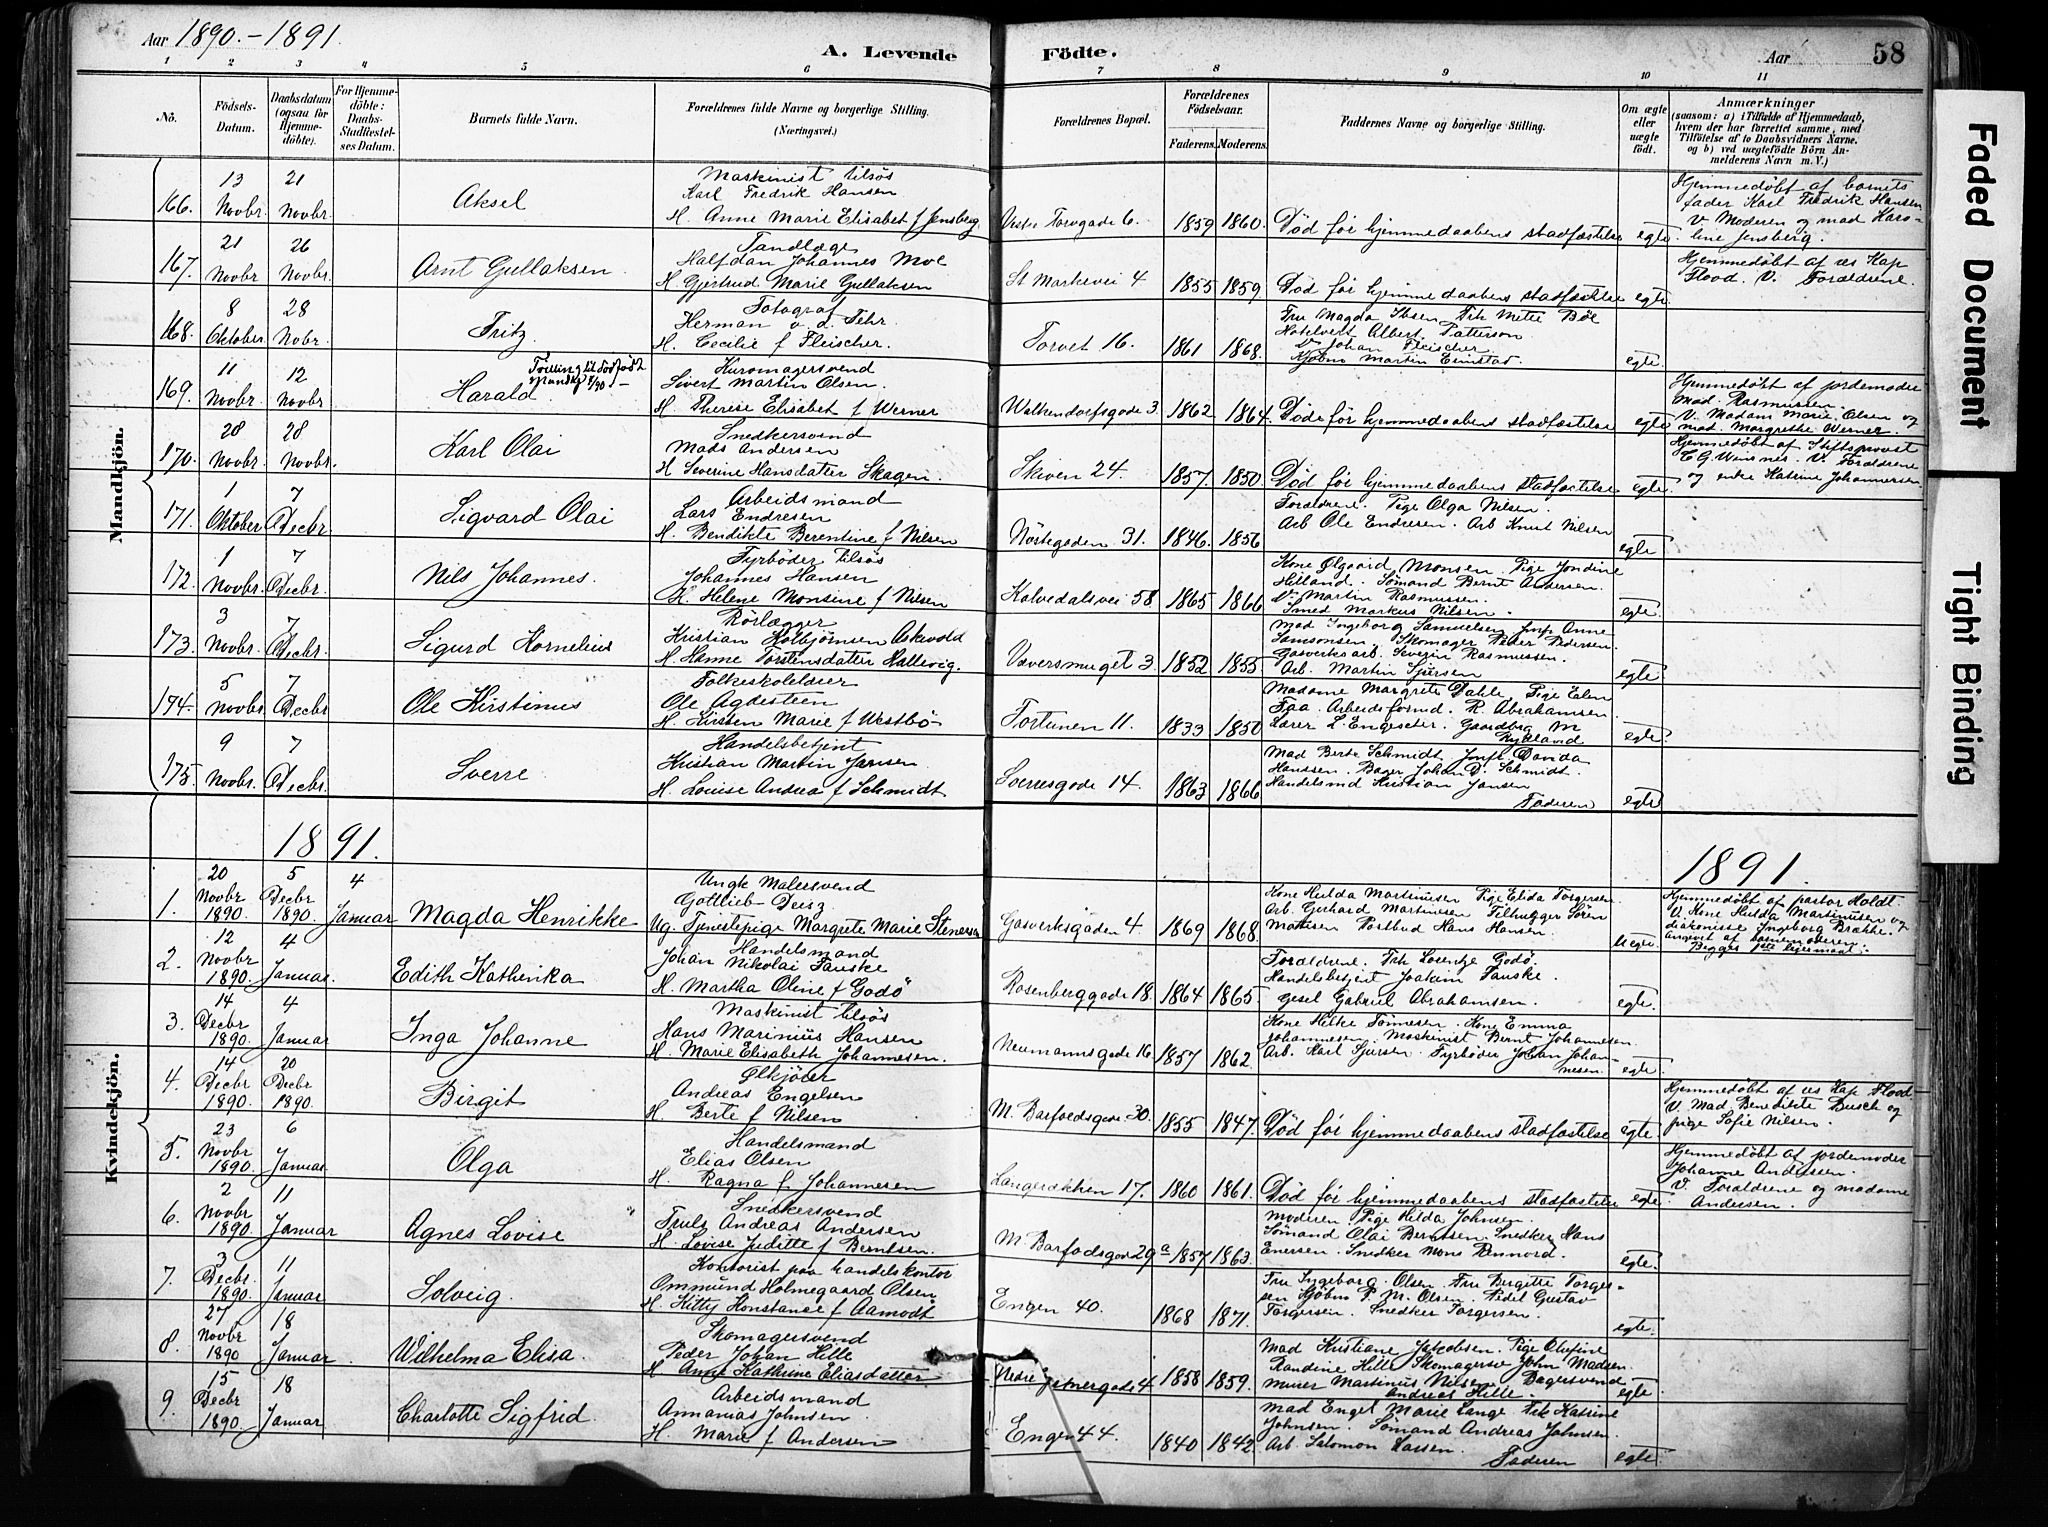 Aar 1890.-1891.
A. Levende Födte.
Aar
58
1 2 3 4 5 6 7 8 9 10 11
No.
Födsels-Datum.
Daabsdatum (ogsaa for Hjemmedöbte).
For Hjemmedöbte: Daabs-Stadfæstelses Datum.
Barnets fulde Navn.
Forældrenes fulde Navne og borgerlige Stilling. (Næringsvei.)
Forældrenes Bopæl.
Forældrenes Födselsaar.
Faderens. Moderens.
Faddernes Navne og borgerlige Stilling.
Om ægte eller uægte födt.
Anmærkninger (saasom: a) i Tilfælde af Hjemmedaab, hvem der har forrettet samme, med Tilföielse af to Daabsvidners Navne. og b) ved uægtefödte Börn Anmelderens Navn m. V.)
Mandkjön.
166. 13 Novbr. 21 Novbr. Aksel
Maskinist tilsøs
Karl Fredrik Hansen
H. Anne Marie Elisabet f Jensberg
Vestre Torvgade 6. 1859 1860. Død før hjemmedaabens stadfæstelse egte.
Hjemmedøbt af barnets
fader Karl Fredrik Hansen
v Moderen og mad Karo-
line Jensberg.
167. 21 Novbr 26 Novbr. Arnt Gullaksen
Tandlæge
Halfdan Johannes Moe
H Gjertrud Marie Gullaksen
St Markevei 4 1855 1859 Død før hjemmedaabens stadfæstelse egte.
Hjemmedøbt af res Kap
Flood. V. Forældrene.
168. 8 Oktober 28 Nobr. Fritz
Fotograf
Herman v. d. Fehr.
H. Cecilie f Fleischer.
Torvet 16. 1861 1868.
Fru Magda Ibsen Frk Mette Bøe
Hotelvert Albert Patterson
Johan Fleischer
Kjøbm Martin Einstad.
egte.
169. 11 Novbr. 12 Novbr Harald
Tvilling til dødfødt
Mandkj 7/90
Kurvmagersvend
Sivert Martin Olsen.
H. Therese Elisabet f Werner
Walkendorfsgade 3. 1862 1864. Døde før hjemmedaabens stadfæstelse egte
Hjemmedøbt af jordemoder
Mad. Rasmussen.
V. Madam Marie Olsen og
mad. Margrethe Werner.
170. 28 Novbr. 28 Novbr. Karl Olai
Snedkersvend
Mads Andersen
H Severine Hansdatter Skagen.
Skiven 24. 1857. 1850. Død før hjemmedaabens stadfæstelse egte.
Hjemmedøbt af Stiftsprovst
V. Forældrene
og enke Katrine Johannesen.
171. 1 Oktober 7 Decbr. Sigvard Olai
Arbeidsmand
Lars Endresen
H. Bendikte Berentine f Nilsen
Nøstegaden 31. 1846. 1856
Forældrene. Pige Olga Nilsen.
Arb Ole Endresen. Arb Knut Nilsen
egte
172. 1 Novbr. 7 Decbr. Nils Johannes.
Fyrbøder tilsøs
Johannes Hansen
H. Helene Monsine f Nilsen
Kalvedalsvei 58 1865 1866
Kone Olgaard Monsen. Pige Jondine
Helland. Sømand Bernt Andersen.
Martin Rasmussen.
Smed Markus Nilsen.
egte.
173. 3 Novbr. 7 Decbr. Sigurd Kornelius
Rørlægger
Kristian Kolbjørnsen Askvold
H. Hanne Torstensdatter Hallevig.
Væversmuget 3. 1852 1855
Mad Ingeborg Samuelsen Jmf Anne
Samsonsen. Skomager Peder Pedersen.
Gasverksarb. Severin Rasmussen.
Arb. Martin Sjursen
egte.
174. 5 Novbr 7 Decbr Ole Kirstinus
Folkeskolelærer
Ole Agdesteen
H. Kirsten Marie f Westbø.
Fortunen 11. 1833 1850
Madame Margrete Dahle, Pige Elen
Faa. Arbeidsformd. R. Abrahamsen
Lærer L. Engeseter. Gaardbrg M
Rykland
egte.
175. 9 Novbr. 7 Decbr. Sverre
Handelsbetjent
Kristian Martin Jansen
H. Louise Andrea f Schmidt
Sverresgade 14. 1863 1866
Mad Berte Schmidt Jomfr Danda
Hanssen. Bager Johan D. Schmidt.
Handelsmd Kristian Jansen
Faderen
egte
1891. 1891.
Kvindekjön.
1. 20 Novbr 1890. 5 Decbr 1890. 4 Januar Magda Henrikke
Ungk Malersvend
Gottlieb Deisz
Ug. Tjenestepige Margrete Marie Stenersen
Gasverksgaden 4. 1869 1868.
Kone Hulda Martinusen Pige Elida Torgersen
Arb. Gerhard Martinusen Filhugger Søren
Mathisen Postbud Hans Hansen.
Uegte.
Hjemmedøbt af pastor Holdt
V. Kone Hulda Martinusen og
diakonisse Ingeborg Brække.
angivet af barnemoderen.
Begges 1ste leiermaal.
2. 12 Novbr 1890. 4 Januar. Edith Kathinka
Handelsmand
Johan Nikolai Fauske
H. Martha Oline f Godø
Rosenberggade 18. 1864 1865
Forældrene. Frk Lorentze Godø.
Handelsbetjent Joakim Fauske.
gesel Gabriel Abrahamsen.
egte.
3. 14 Decbr 1890. 4 Januar Inga Johanne
Maskinist tilsøs
Hans Marinius Hansen
H. Marie Elisabeth Johannesen.
Neumannsgade 16 1857 1862.
Kone Hilke Tønnesen. Kone Emma
Johannesen. Maskinist Bernt Johannesen
Arb. Karl Sjursen. Fyrbøder Johan Johan-
nesen.
egte.
4. 14 Decbr 1890. 20 Decbr 1890. Birgit
Ølkjører
Andreas Engelsen
H. Berte f Nilsen
M. Barfoedsgade 30. 1855 1847. Død før hjemmedaabens stadfæstelse egte
Hjemmedøbt af res Kap Flood
V. Mad. Benedikte Busch og
pige Sofie Nilsen.
5. 23 Novbr 1890. 6 Januar Olga
Handelsmand
Elias Olsen
H. Ragna f Johannesen
Langerækken 17. 1860 1861. Død før hjemmedaabens stadfæstelse egte.
Hjemmedøbt af jordemoder
Johanne Andersen.
V. Forældrene og madame
Andersen.
6. 2 Novbr 1890. 11 Januar Agnes Lovise
Snedkersvend
Truls Andreas Andersen
H. Lovise Juditte f Berntsen.
M. Barfodsgade 29 a 1857 1863.
Moderen Pige Hilda Johnsen.
Sømand Olai Berntsen. Snedker Hans
Enersen. Snedker Mons Rennord.
egte.
7. 3 Decbr. 1890. 11 Januar Solveig.
Kontorist paa handelskontor
Ommund Holmegaard Olsen
H. Kitty Konstance f Aamodt
Engen 40. 1868 1871.
Fru Ingeborg Olsen. Fru Bergitte Torger-
sen Kjøbm P. M. Olsen. Fidel Gustav
Torgersen. Snedker Torgersen.
egte.
8. 27 Novbr 1890 18 Januar. Wilhelma Elisa.
Skomagersvend
Peder Johan Hille
H. Anne Kathrine Eliasdatter
Nedre 4 1858 1859.
Mad Kristiane Jakobsen. Pige Olufine
Randine Hille Skomagersv John Madsen.
Murer Martinus Nilsen Bagersvend
Andreas Hille.
egte
9. 15 Decbr 1890. 18 Januar Charlotte Sigfrid.
Arbeidsmand
Annanias Johnsen
H. Marie f Andersen
Engen 44. 1840 1842.
Mad Engel Marie Lange Frk Katrine
Johnsen. Sømand Andreas Johnsen.
Arb. Salomon Larsen.
Faderen
egte
Faded Document
Tight Binding